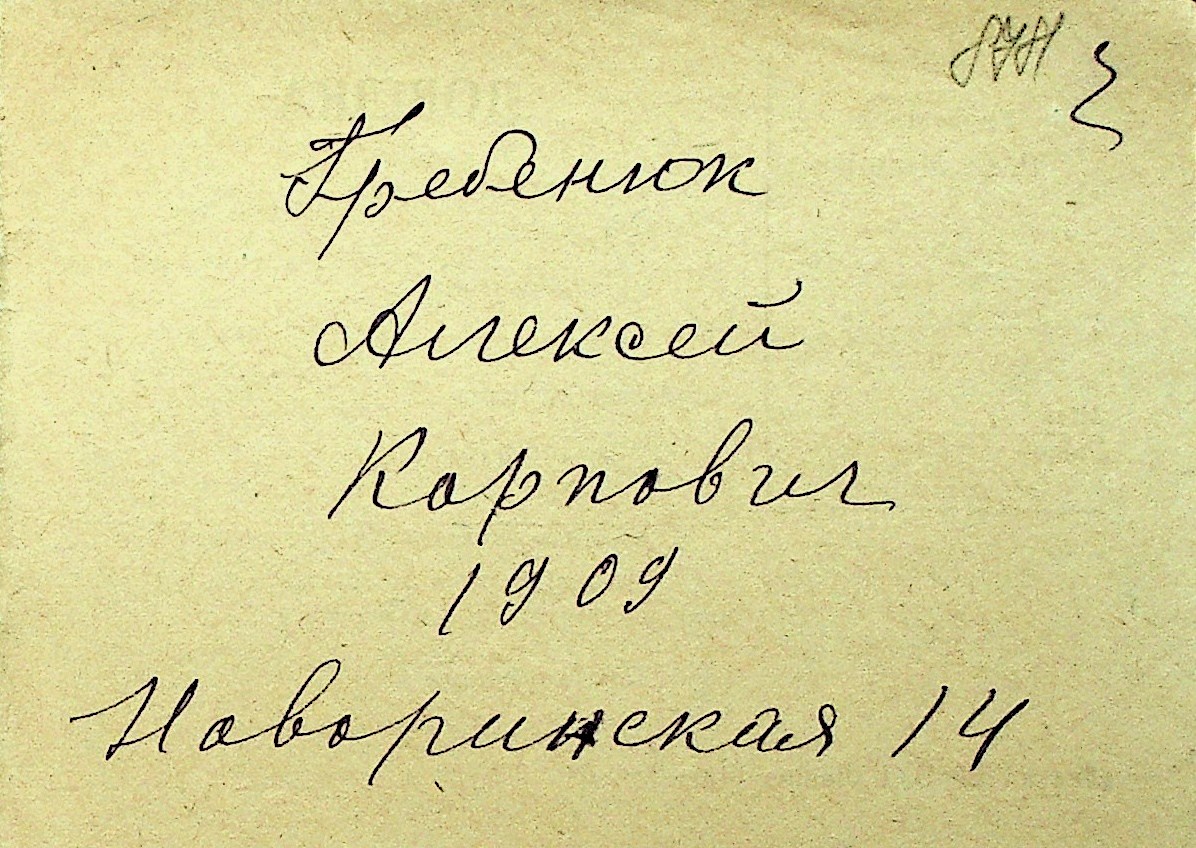 Гребенюк
Алексей
Карпович
1909
Новоринская 14